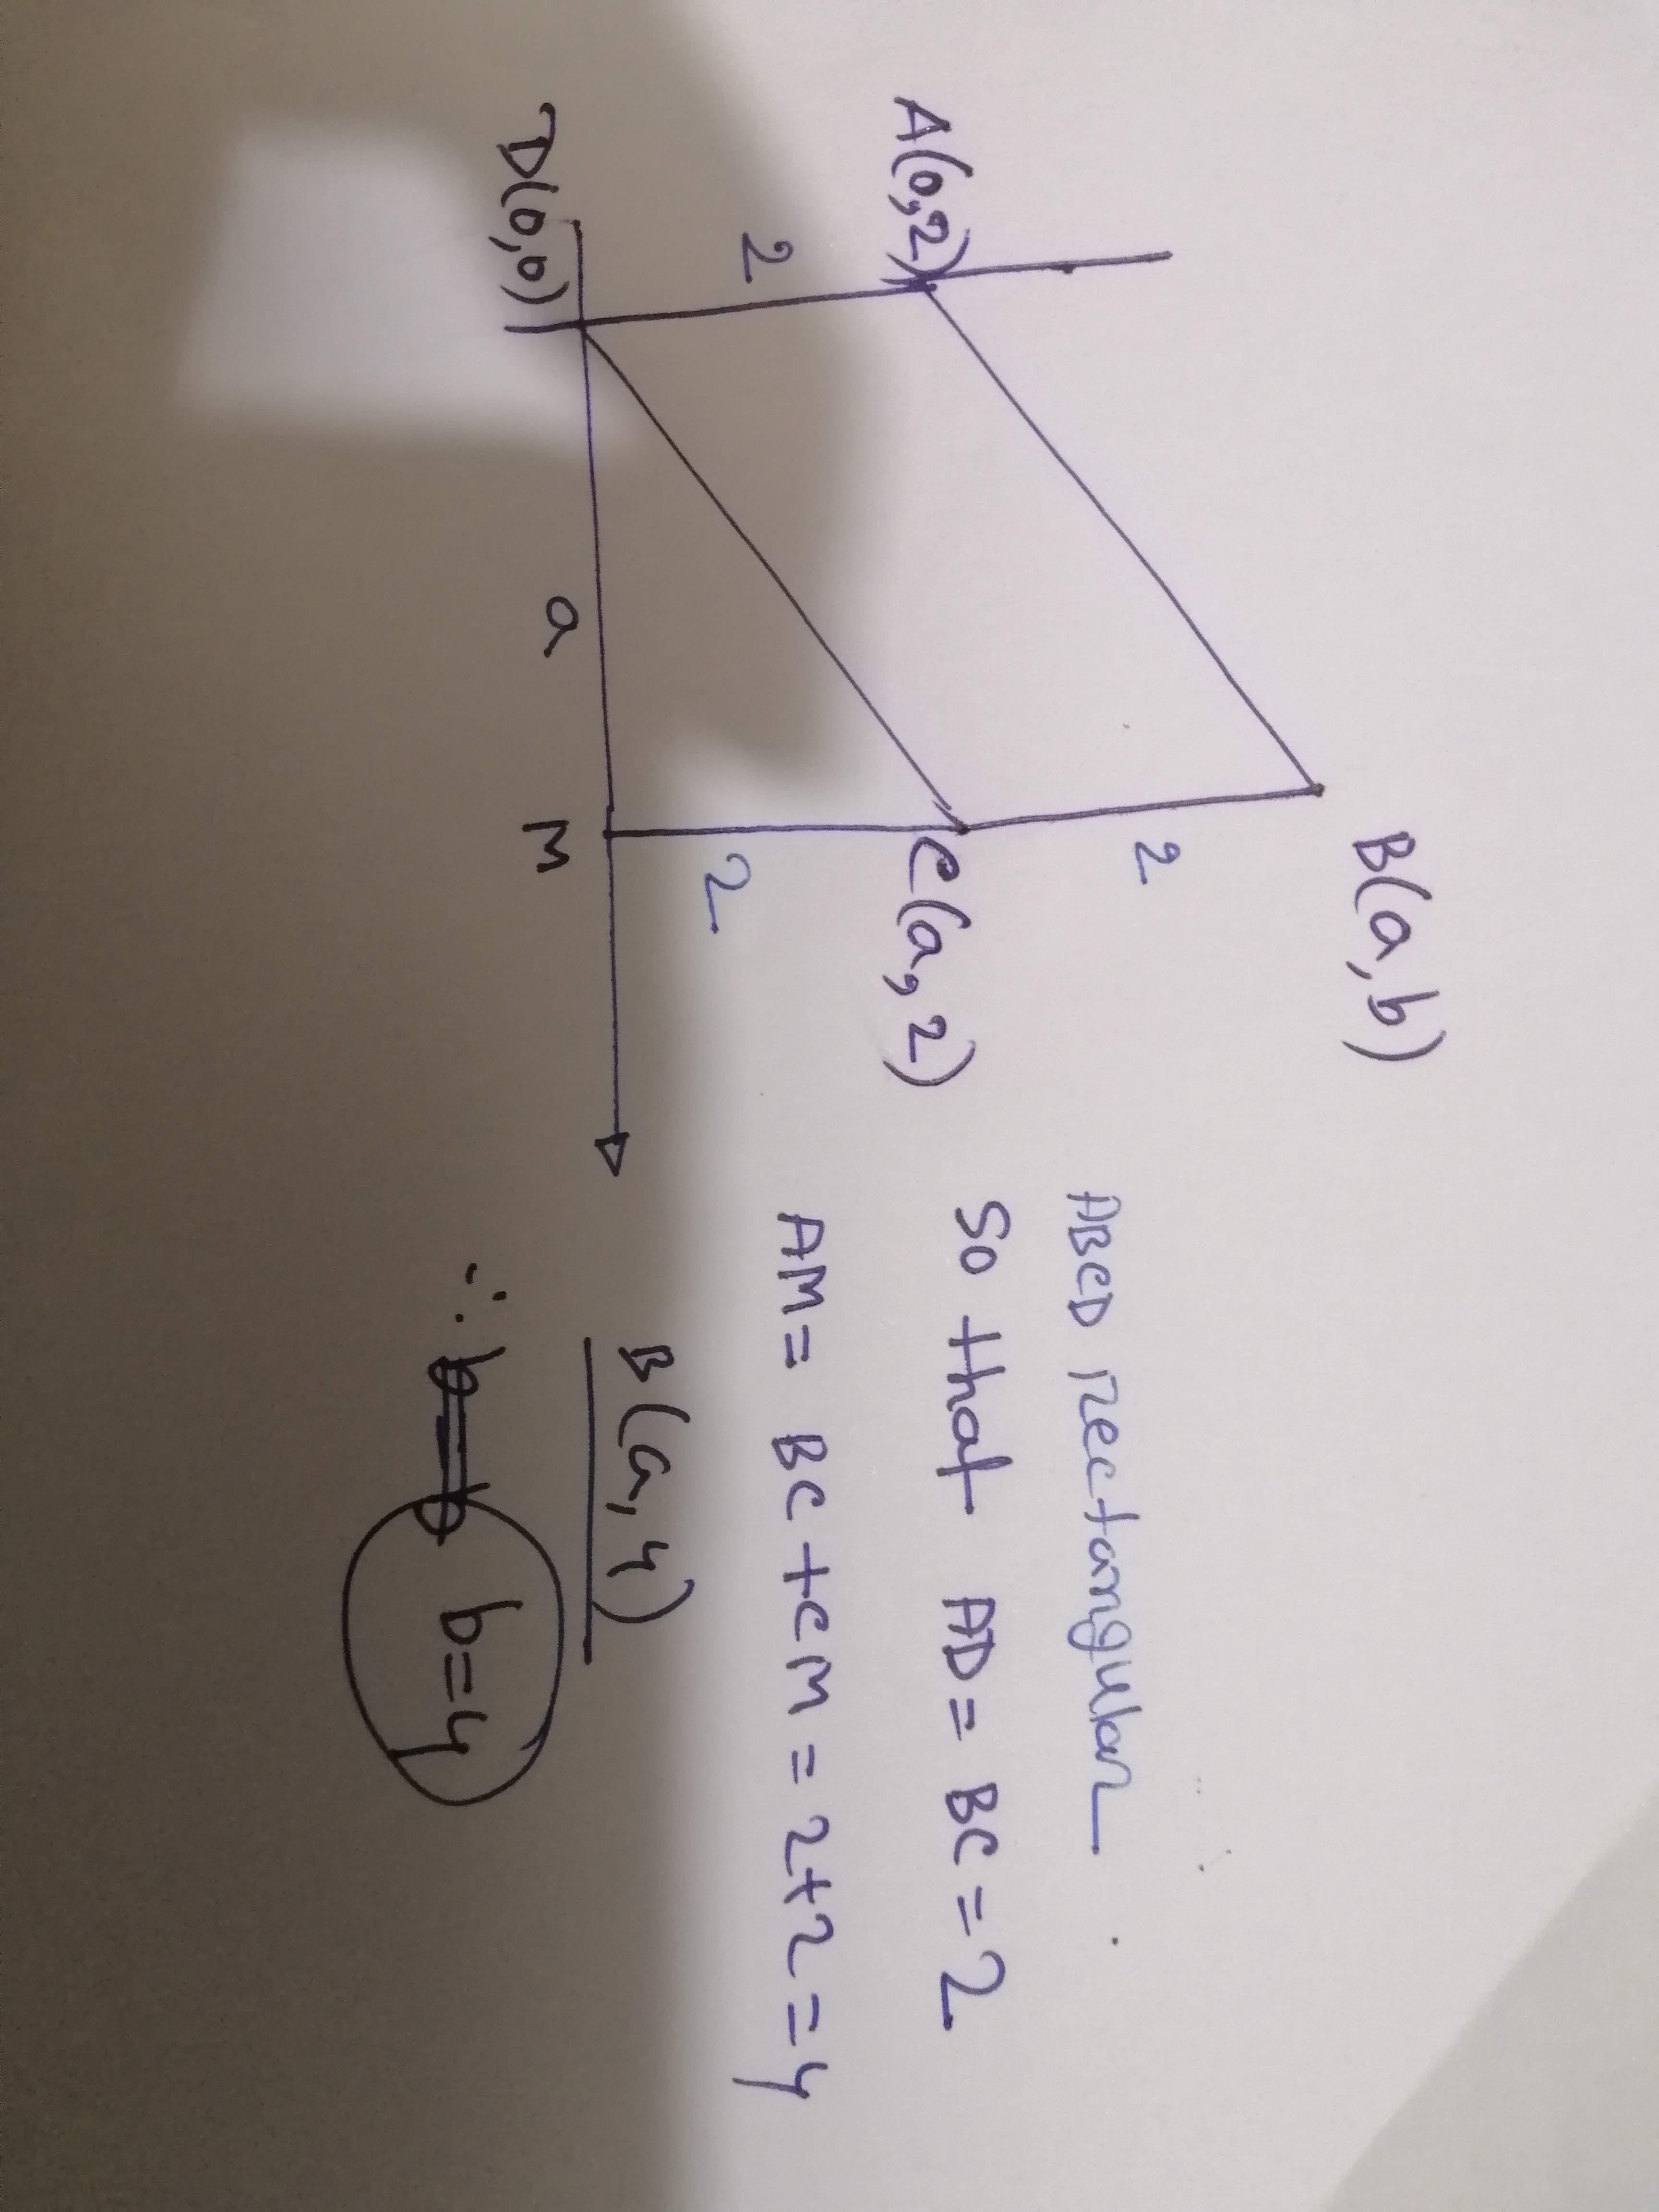 B(a,b)
A(0,2)
2
C(a,2)
2
2
D(0,0)
a
M
ABCD rectangular
So that AD = BC = 2
AM = BC + CM = 2+2 = 4
B(a,4)
∴ b=4